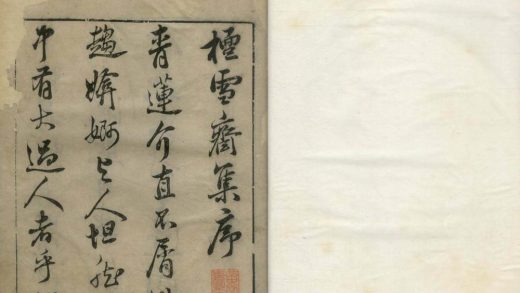 檀雪齋集序
青蓮介直不屑
趨媕婀与人坦然
中有大過人者乎